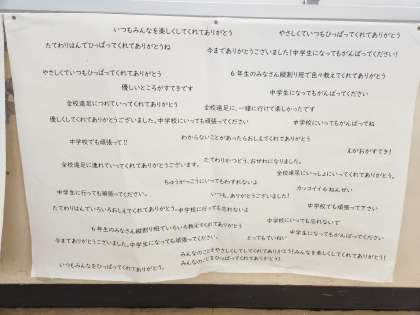 いつもみんなを楽しくしてくれてありがとう
やさしくしてくれてありがとう
たてわりはんでひっぱってくれてありがとうね
今までありがとうございました!中学生になってもがんばってください!
やさしくていつもひっぱってくれてありがとう
6年生のみなさん縦割り班で色々教えてくれてありがとう
優しいところがすてきです
中学生になってもがんばってください
全校遠足につれていってくれてありがとう
全校遠足に、一緒に行けて楽しかったです
優しくしてくれてありがとうございました。中学校にいっても頑張ってください
中学校にいってもがんばってね
わからないことがあったらおしえてくれてありがとう
中学校でも頑張って!!
えがおがすてき!
たてわりかつどう、おせわになりました。
全校遠足に連れていってくれてありがとうございます。
全校遠足にいっしょにいってくれてありがとう。
ちゅうがっこうにいってもわすれないよ
カッコイイ6ねんせい
中学生に行っても頑張ってください。
いつも、ありがとうございました!
中学校でも頑張って下さい
たてわりはんでいろいろおしえてくれてありがとう。中学校に行っても忘れないよ
中学校にいっても忘れないで
6年生のみなさん縦割り班でいろいろ教えてくれてありがとう
中学生になってもがんばってください
今までありがとうございました。中学生になっても頑張ってください。
とってもていねい
みんなのことをやさしくしてくれてありがとう!みんなを楽しくしてくれてありがとう!
いつもみんなをひっぱってくれてありがとう。
みんなのことをひっぱってくれてありがとう!